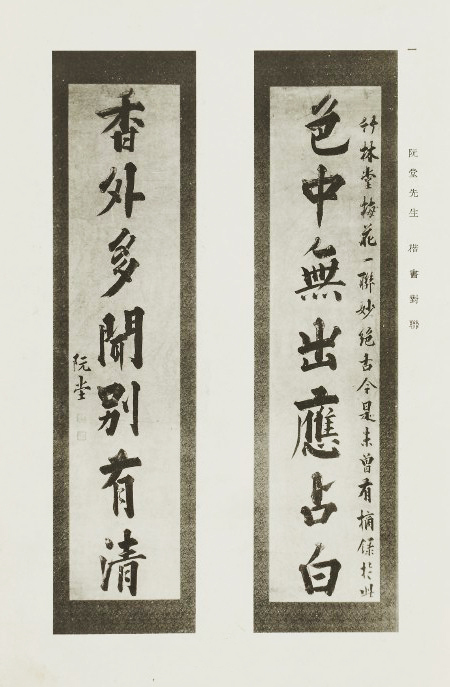 一
阮堂先生 楷書對聯
竹林堂梅花一聯妙絶古今是未曾有摘録於此
色中無出應占白
香外多聞別有清
阮堂